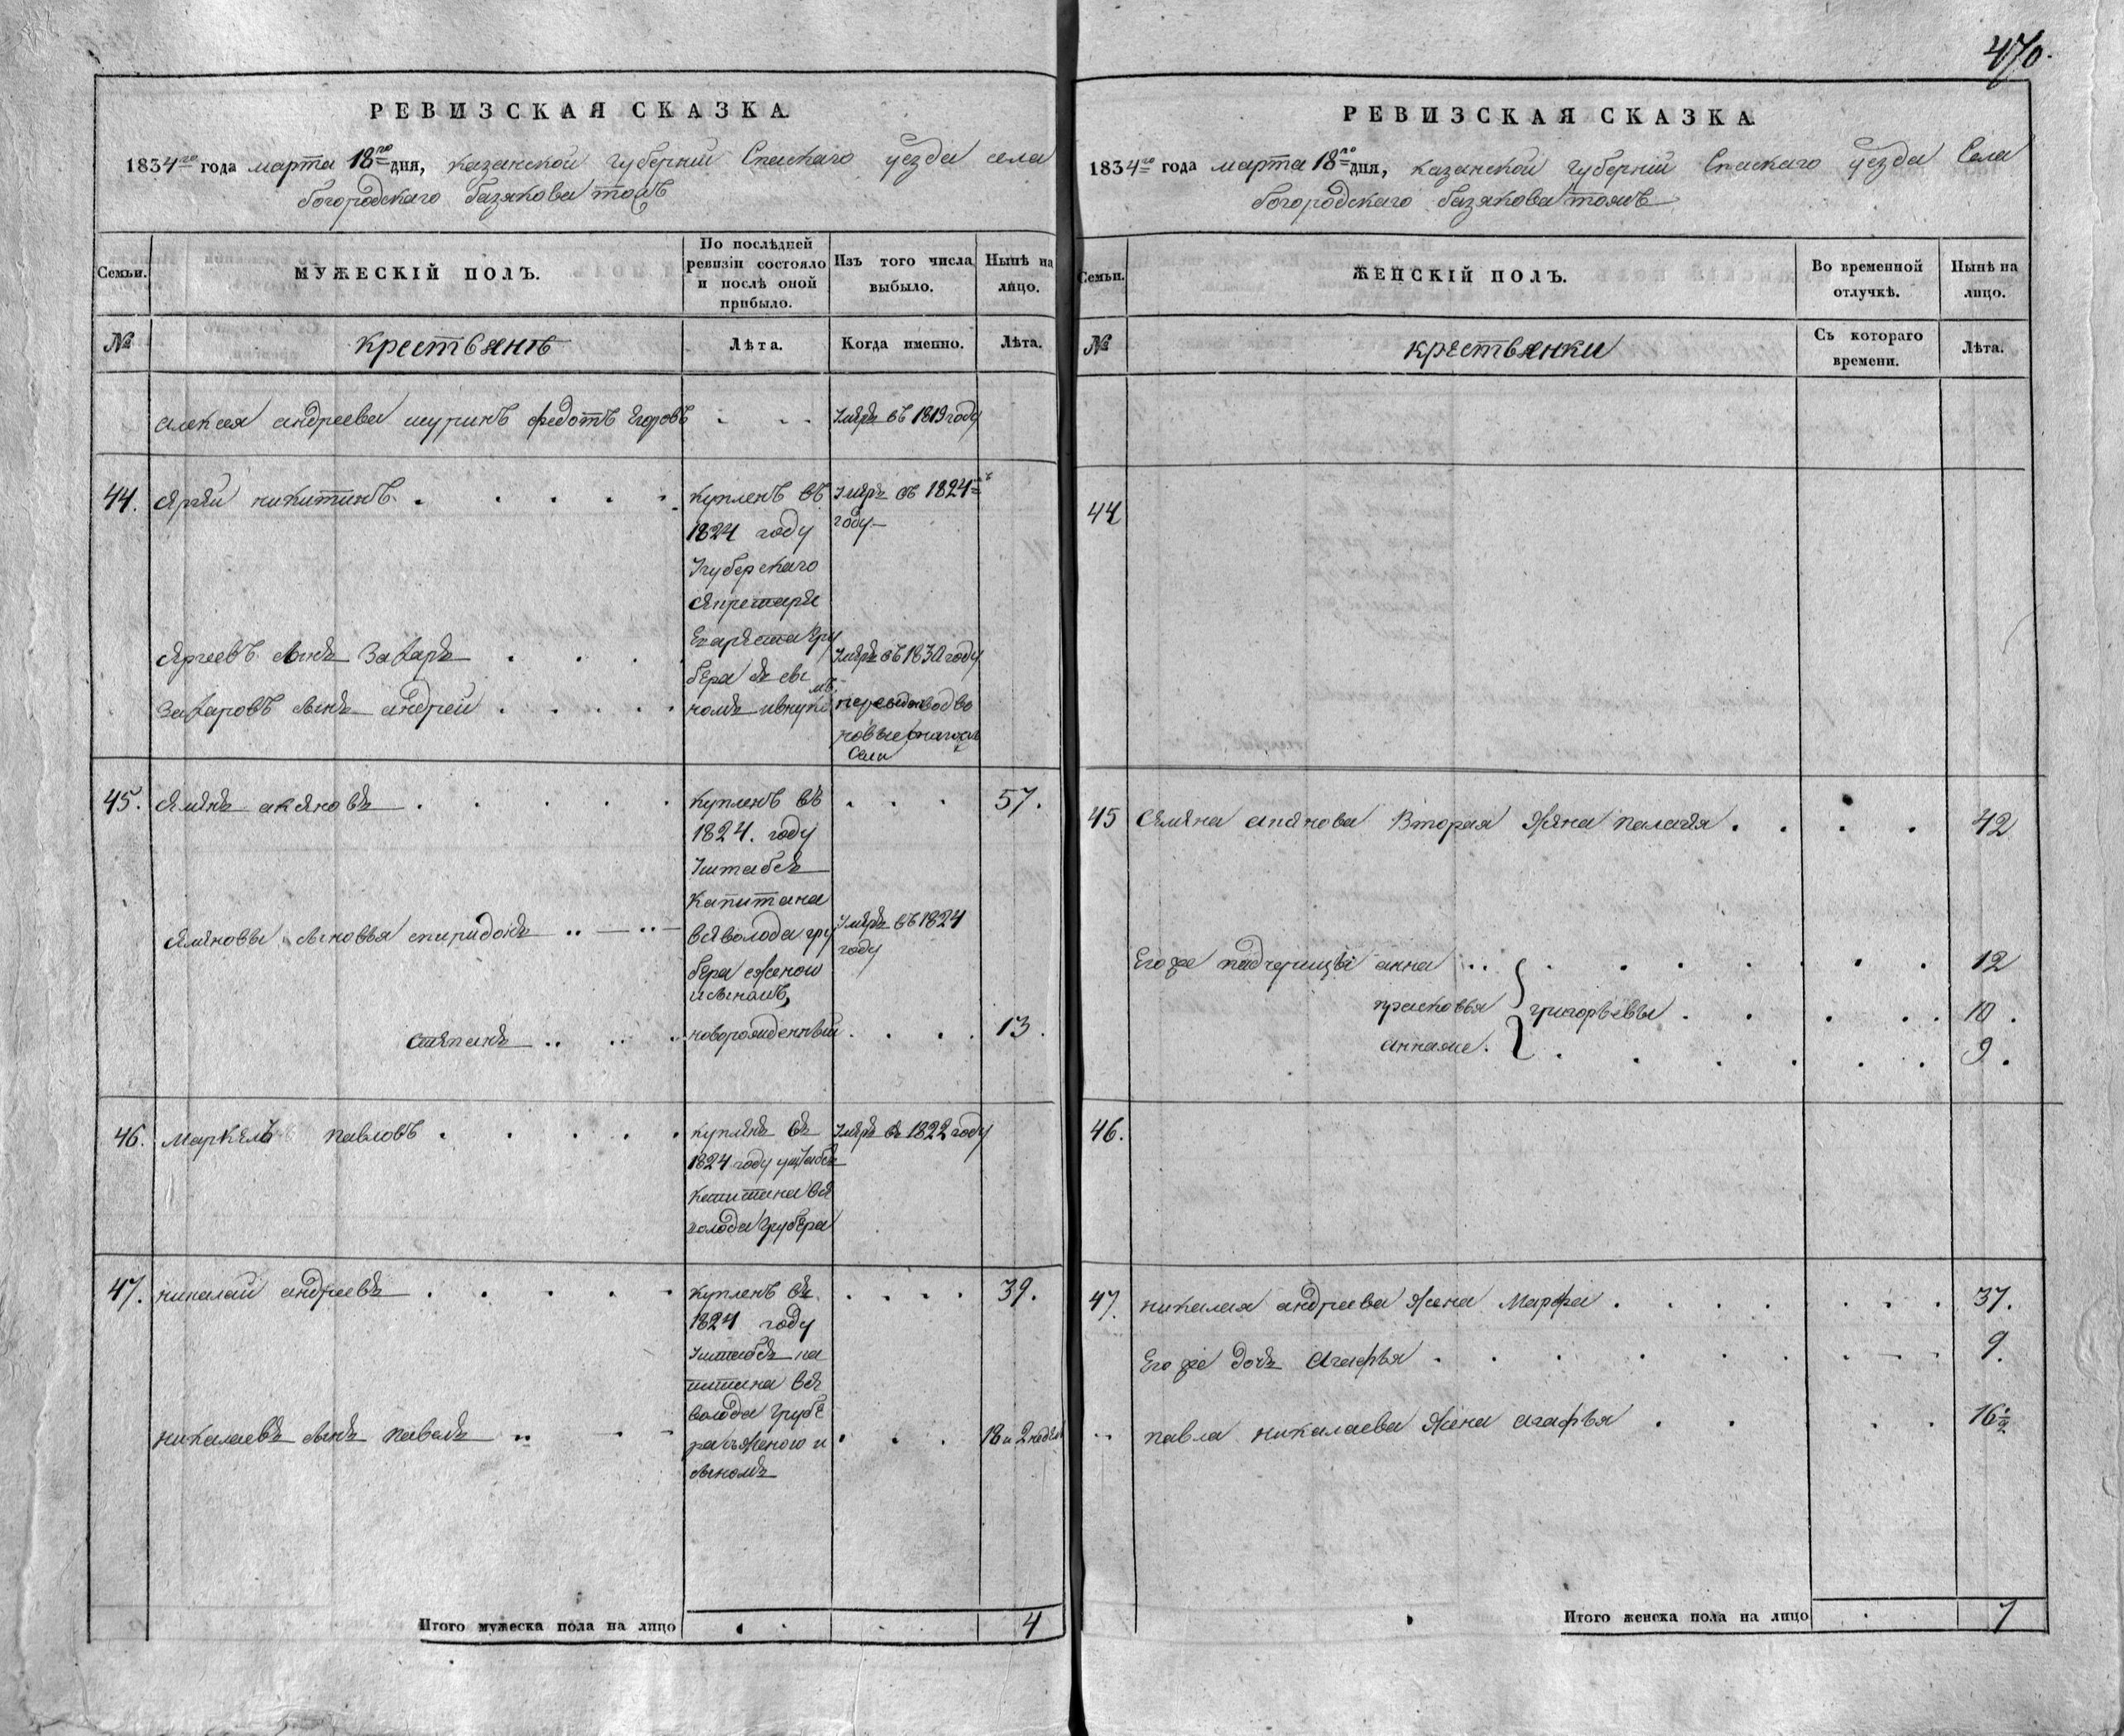 470.
РЕВИЗСКАЯ СКАЗКА
1834го года марта 18го дня, казанской губерніи Спаскаго уезда села
богородскаго базякова тожъ
Семьи.
МУЖЕСКІЙ ПОЛЪ.
По послѣдней ревизіи состояло и послѣ оной прибыло.
Изъ того числа выбыло.
Нынѣ на лицо.
№
крестьянъ
Лѣта.
Когда именно.
Лѣта.
алексея андреева шуринъ федотъ Егоровъ
умяръ въ 1819 году
44. сяргяй никитинъ
купленъ въ
1824 году
Угуберскаго
сякретаря
умяръ въ 1824мъ
году
сяргеевъ сынъ Захаръ
умяръ въ 1830 году
захаровъ сынъ андрей
бера съ сы
номъ ивнукомъ
45. сямянъ
57.
купленъ въ
1824. году
Уштабсъ
капитана
всяволода гру
бера сженою
исыномъ,
сямяновы сыновья спиридонъ
умяръ въ 1824
году
стяпанъ
новорожденный
13.
46. маркялъ павловъ
куплянъ въ
1824 году уштабсъ
капитана вся
волода грубера
умяръ въ 1822 году
47. николай андреевъ
39.
купленъ въ
1824 году
Уштабсъ ка
питана вся
волода грубе
ра съженою и
сыномъ
николаевъ сынъ павелъ
18 и 2 недели
Итого мужеска пола на лицо
4
РЕВИЗСКАЯ СКАЗКА
1834го года марта 18го дня, казанской губерніи Спаскаго уезда Села
богородскаго базякова тожъ
Семьи.
ЖЕНСКІЙ ПОЛЪ.
Во временной отлучкѣ.
Нынѣ на лицо.
№
крестьянки
Съ котораго времени.
Лѣта.
44
45 Сямяна Вторая жяна палагяя
42
Его же падчерицы анна
12
прасковья григорьевы
10.
аннаже.
9.
46.
47. николая андреева жена Марфа
37.
Его же дочь Агафья
9.
павла николаева жена агафья
16
Итого женска пола на лицо
7